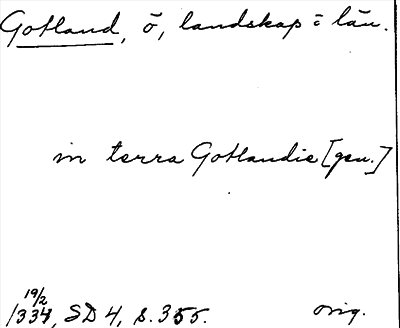 Gotland, ö, landskap o län.
in terra Gotlandie [gen.]
19/2
1334, SD 4, s. 355. orig.